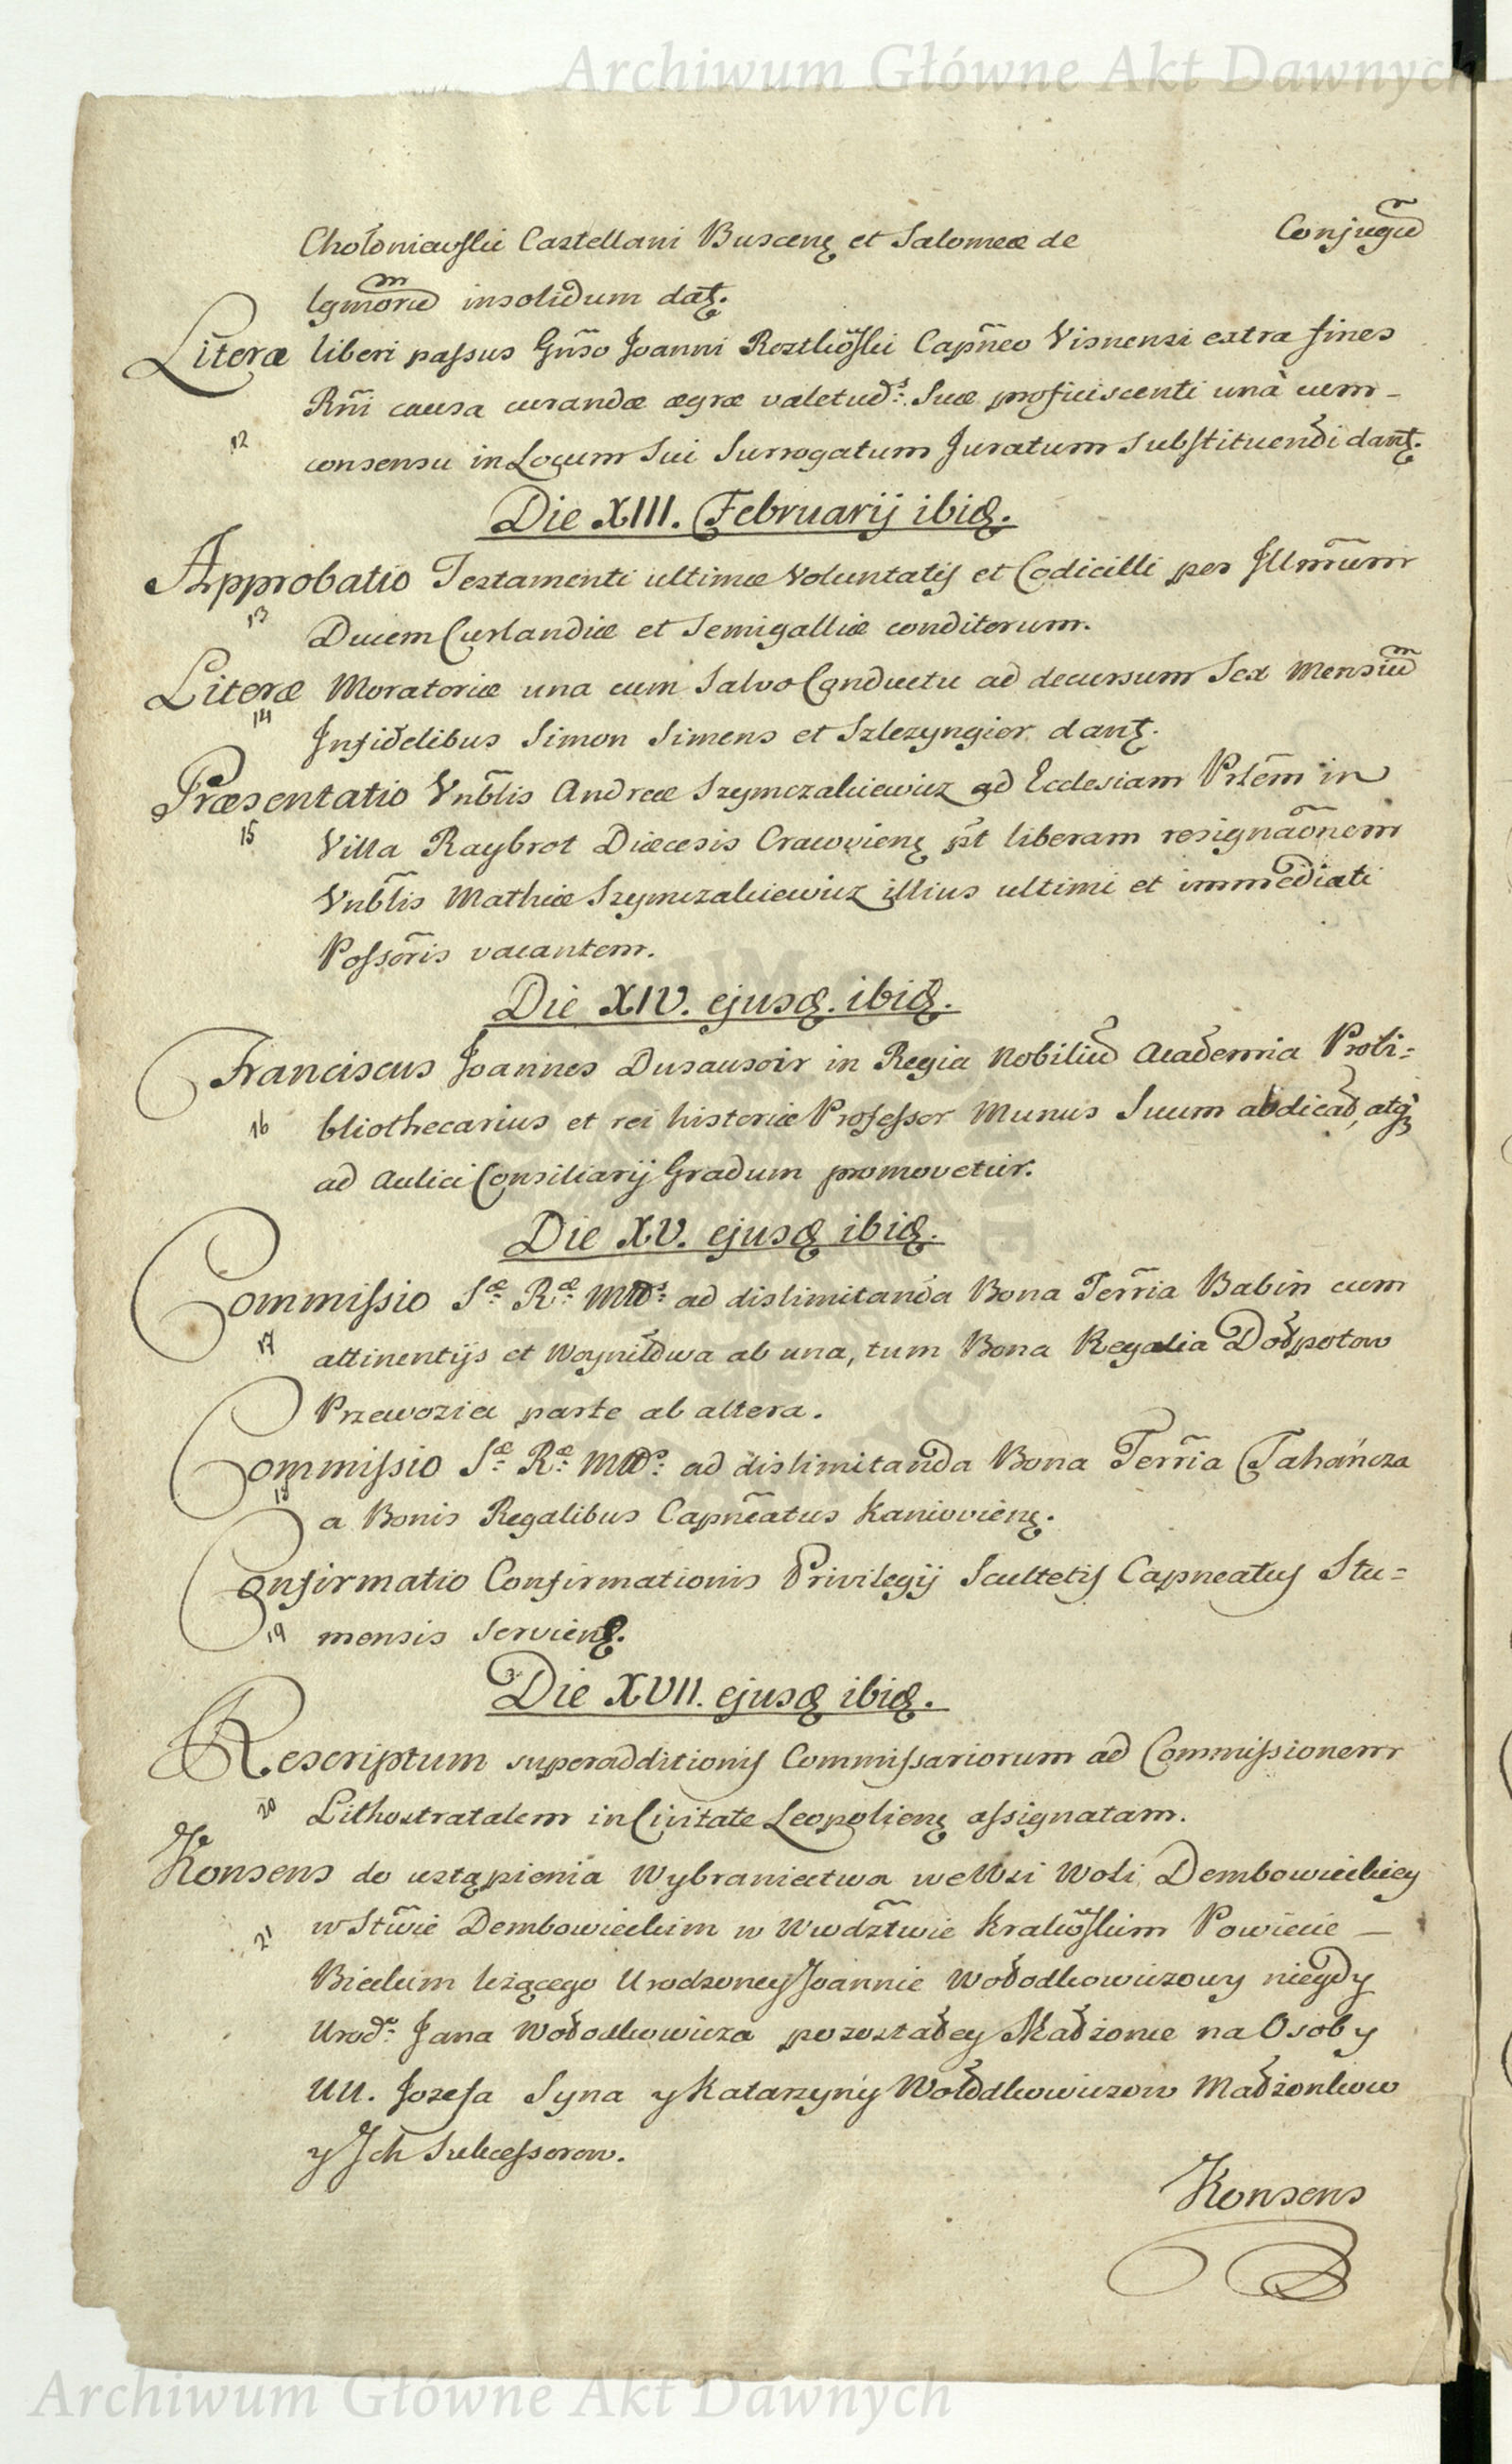 Archiwum Główne Akt Dawnych
Chołoniewskie Castellani Buscenę et Salomeæ de Conjugũ
lgmorũ insolidum datę.
Literæ liberi passus Gñso Joanni Rostkõski Capñeo Visnensi extra fines
Rñi causa curandæ ægræ valetudˢ: Suæ proficiscenti unà cum -
12 consensu in Locum Sui Surrogatum Juratum substituendi dantę.
Die XIII. Februarij ibidę.
Approbatio Testamenti ultimæ Voluntatis et Codicilli per Jllm̃um
13 Ducem Curlandiæ et Semigalliæ conditorum.
Literæ Moratoriæ una cum Salvo Conductu ad decursum Sex Mensiũ
14 Infidelibus Simon Simens et Szlezyngier dantę.
Præsentatio Vnb̃lis Andreæ Szymczakiewicz ad Ecclesiam Prłem in
15 Villa Raybrot Diæcesis Cracovienę pt̃ liberam resignãonem
Vnb̃lis Mathiæ Szymczakiewicz illius ultimi et immediati
Possõris vacantem.
Die XIV. ejusdę. ibidę.
Franciscus Joannes Dusausoir in Regia Nobiliũ Academia Probi=
16 bliothecarius et rei historiæ Professor Munus Suum abdicad, atqȝ
ad Aulici Consiliarij Gradum promovetur.
Die XV. ejusdę ibidę.
Commissio Sᵃᵉ: Rᵃᵉ: Mttˢ: ad dislimitanda Bona Terr̃ia Babin cum
17 attinentijs et Woyniłowa ab una, tum Bona Regalia Dołpotow
Przewoziec parte ab altera.
Commissio Sᵃᵉ: Rᵃᵉ: Mttˢ: ad dislimitanda Bona Terr̃ia Tahańcza
18 a Bonis Regalibus Capñeatus Kaniovienę.
Confirmatio Confirmationis Privilegij Scultetis Capneatus Stu=
19 mensis Servienę.
Die XVII. ejusdę ibidę.
Rescriptum superadditionis Commissariorum ad Commissionem
20 Lithostratalem in Civitate Leopolienę assignatam.
Konsens do ustąpienia Wybraniectwa we Wsi Woli Dembowieckiey
21 w Stw̃ie Dembowieckim w Wwdztwie Krakõskim Powiecie —
Bieckim leżącego Urodzoney Joannie Wołodkowiczowy niegdy
Urodᵒ: Jana Wołodkowicza pozostałey Małżonce na Osoby
UU. Jozefa Syna y Katarzyny Wołodkowiczow Małżonkow
y Jch Sukcessorow.
Konsens
Archiwum Główne Akt Dawnych